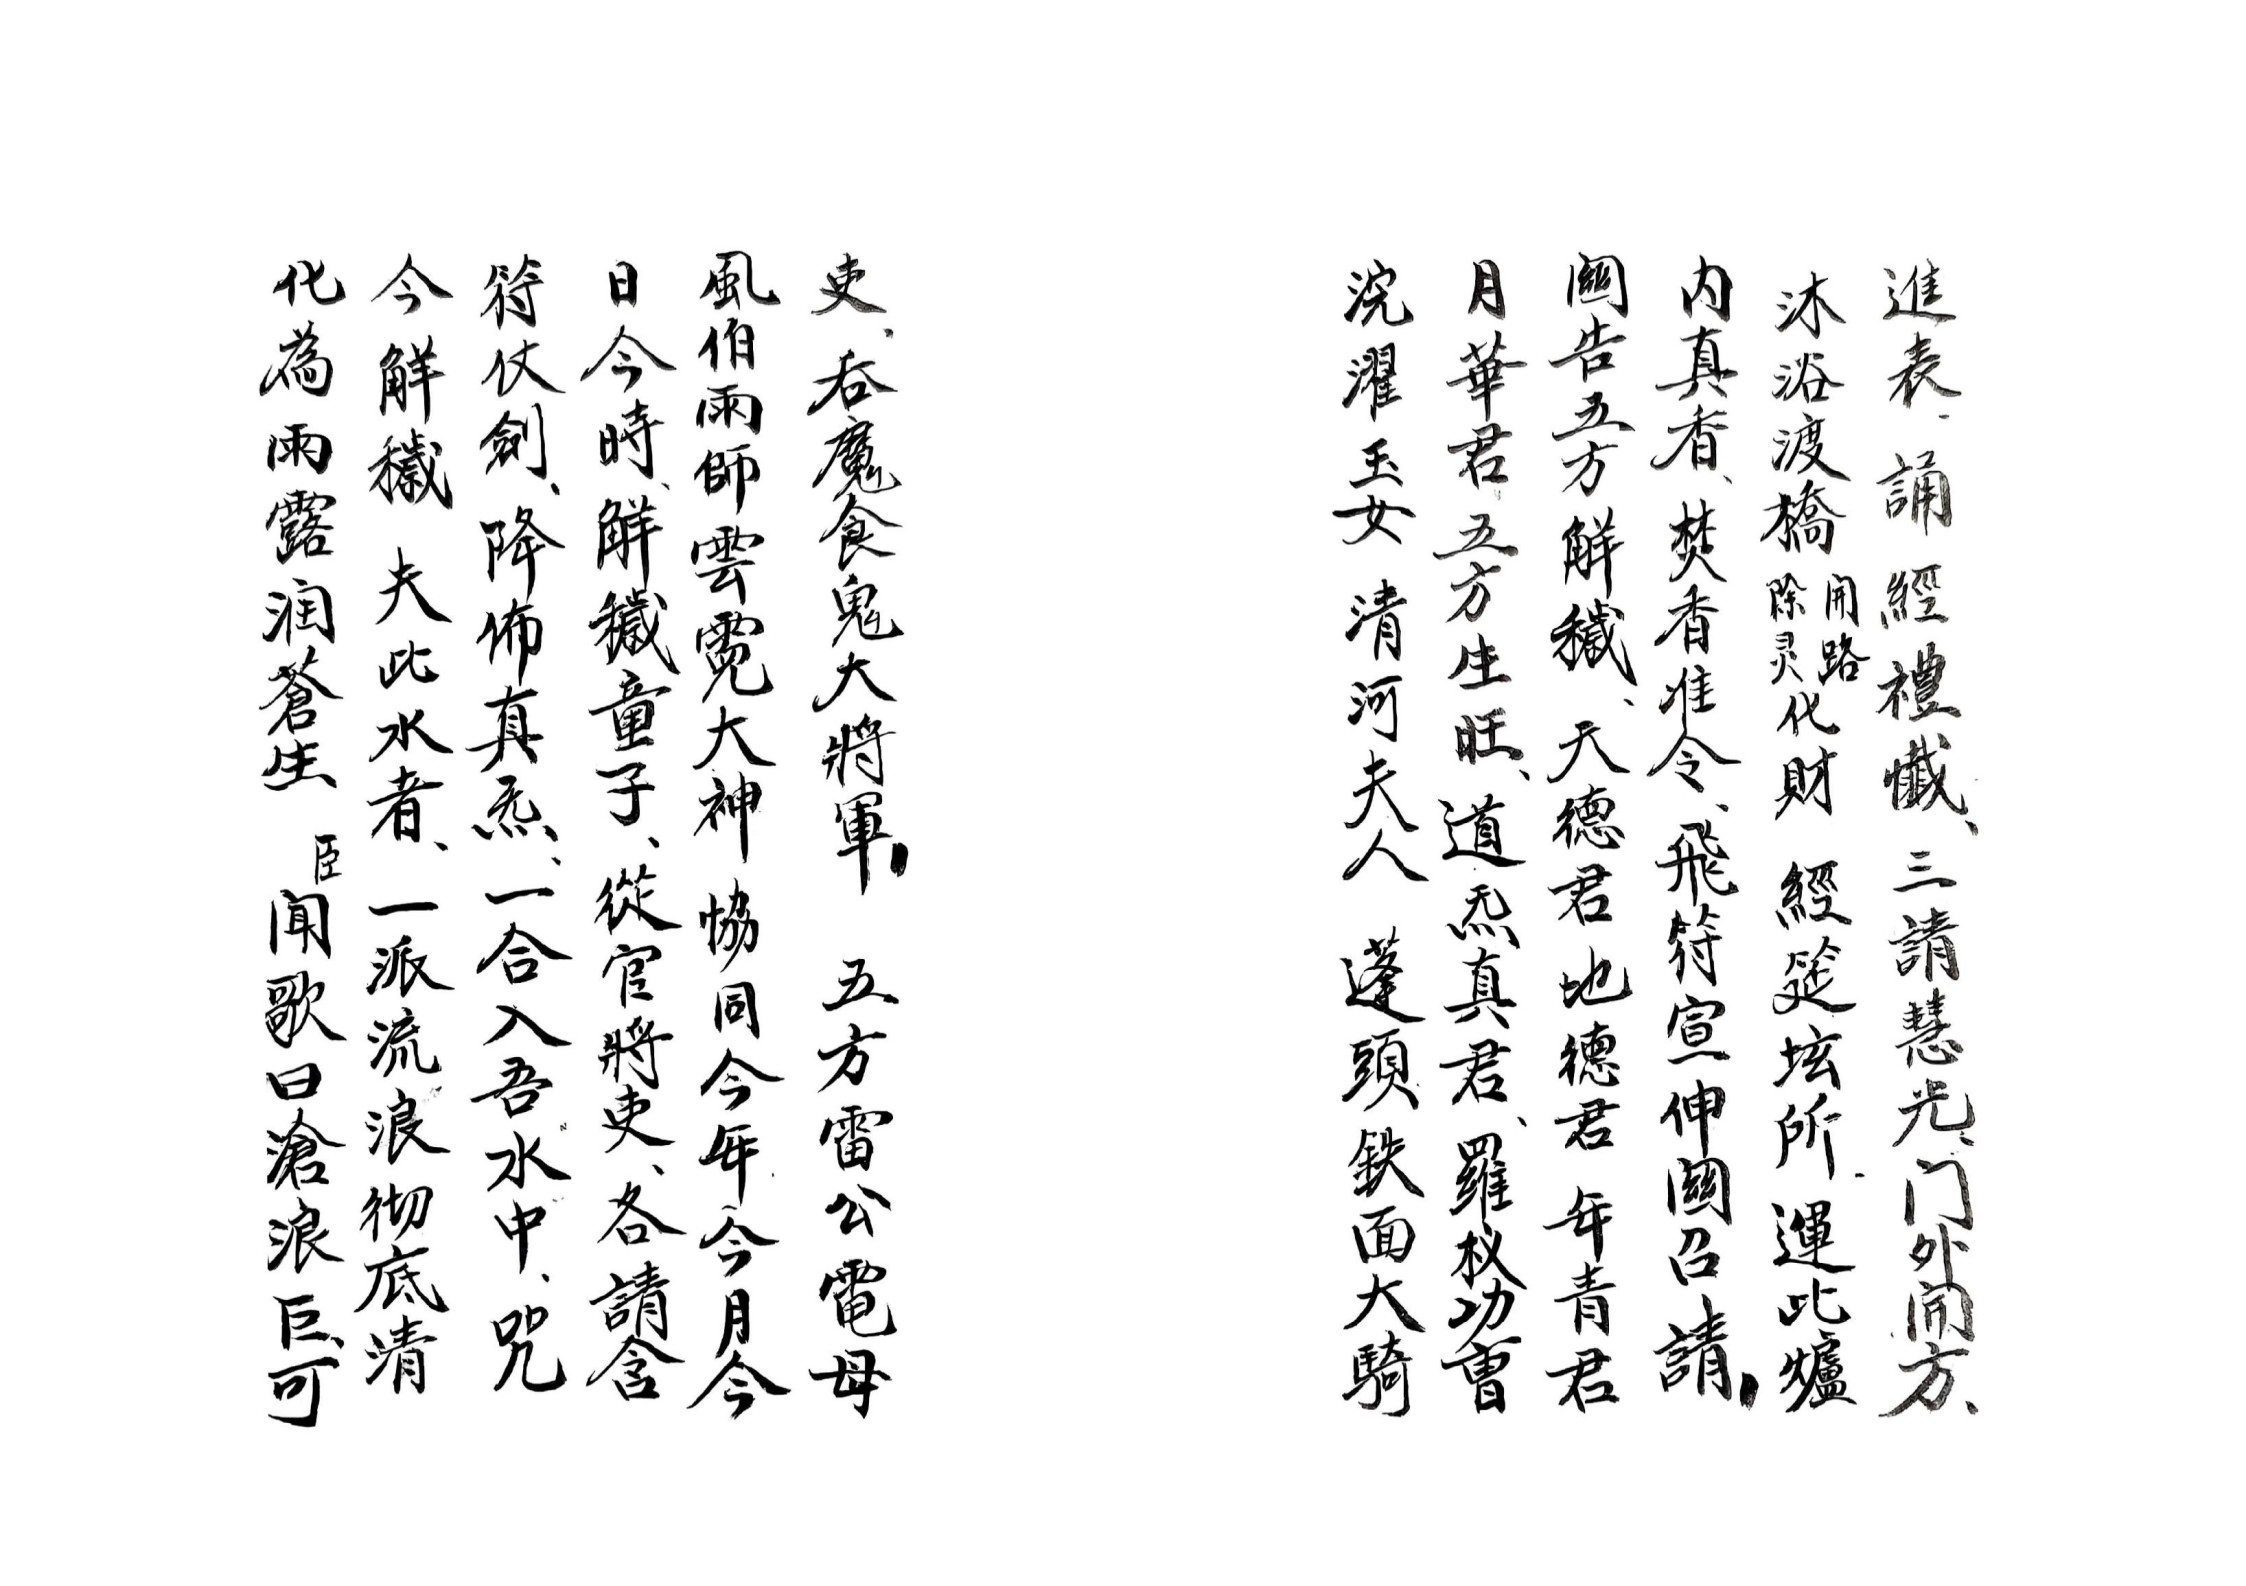 進表、誦經禮懺、三請慧光、门外開方、
沐浴渡橋 開路 除灵 化財 經筵坛所、運此爐
内真香、焚香准令、飛符宣伸關召請,
關告五方解穢、天德君地德君年青君
月華君五方生旺、道炁真君、羅杈功曹
浣濯玉女 清河夫人 蓬頭鉄面大騎
吏、吞魔食鬼大將軍, 五方雷公電母
風伯雨師雲霓大神 協同今年今月今
日今時、解穢童子、從官將吏、各請含
符仗劍、降佈真炁、一合入吾水中、咒
今解穢 夫此水者、一派流浪彻底清
化為雨露润蒼生 臣聞歌曰滄浪巨、可